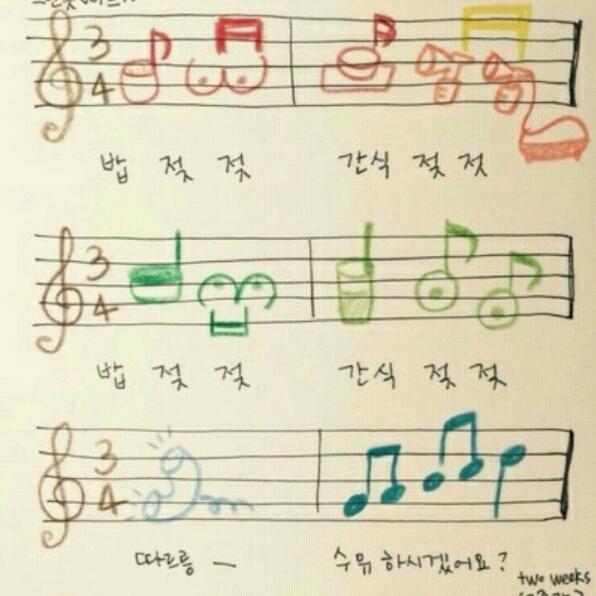 3 4
밥 젖 젖 간식 젖 젖
3 4
밥 젖 젖 간식 젖 젖
3 4
따르릉 — 수유 하시겠어요?
two weeks